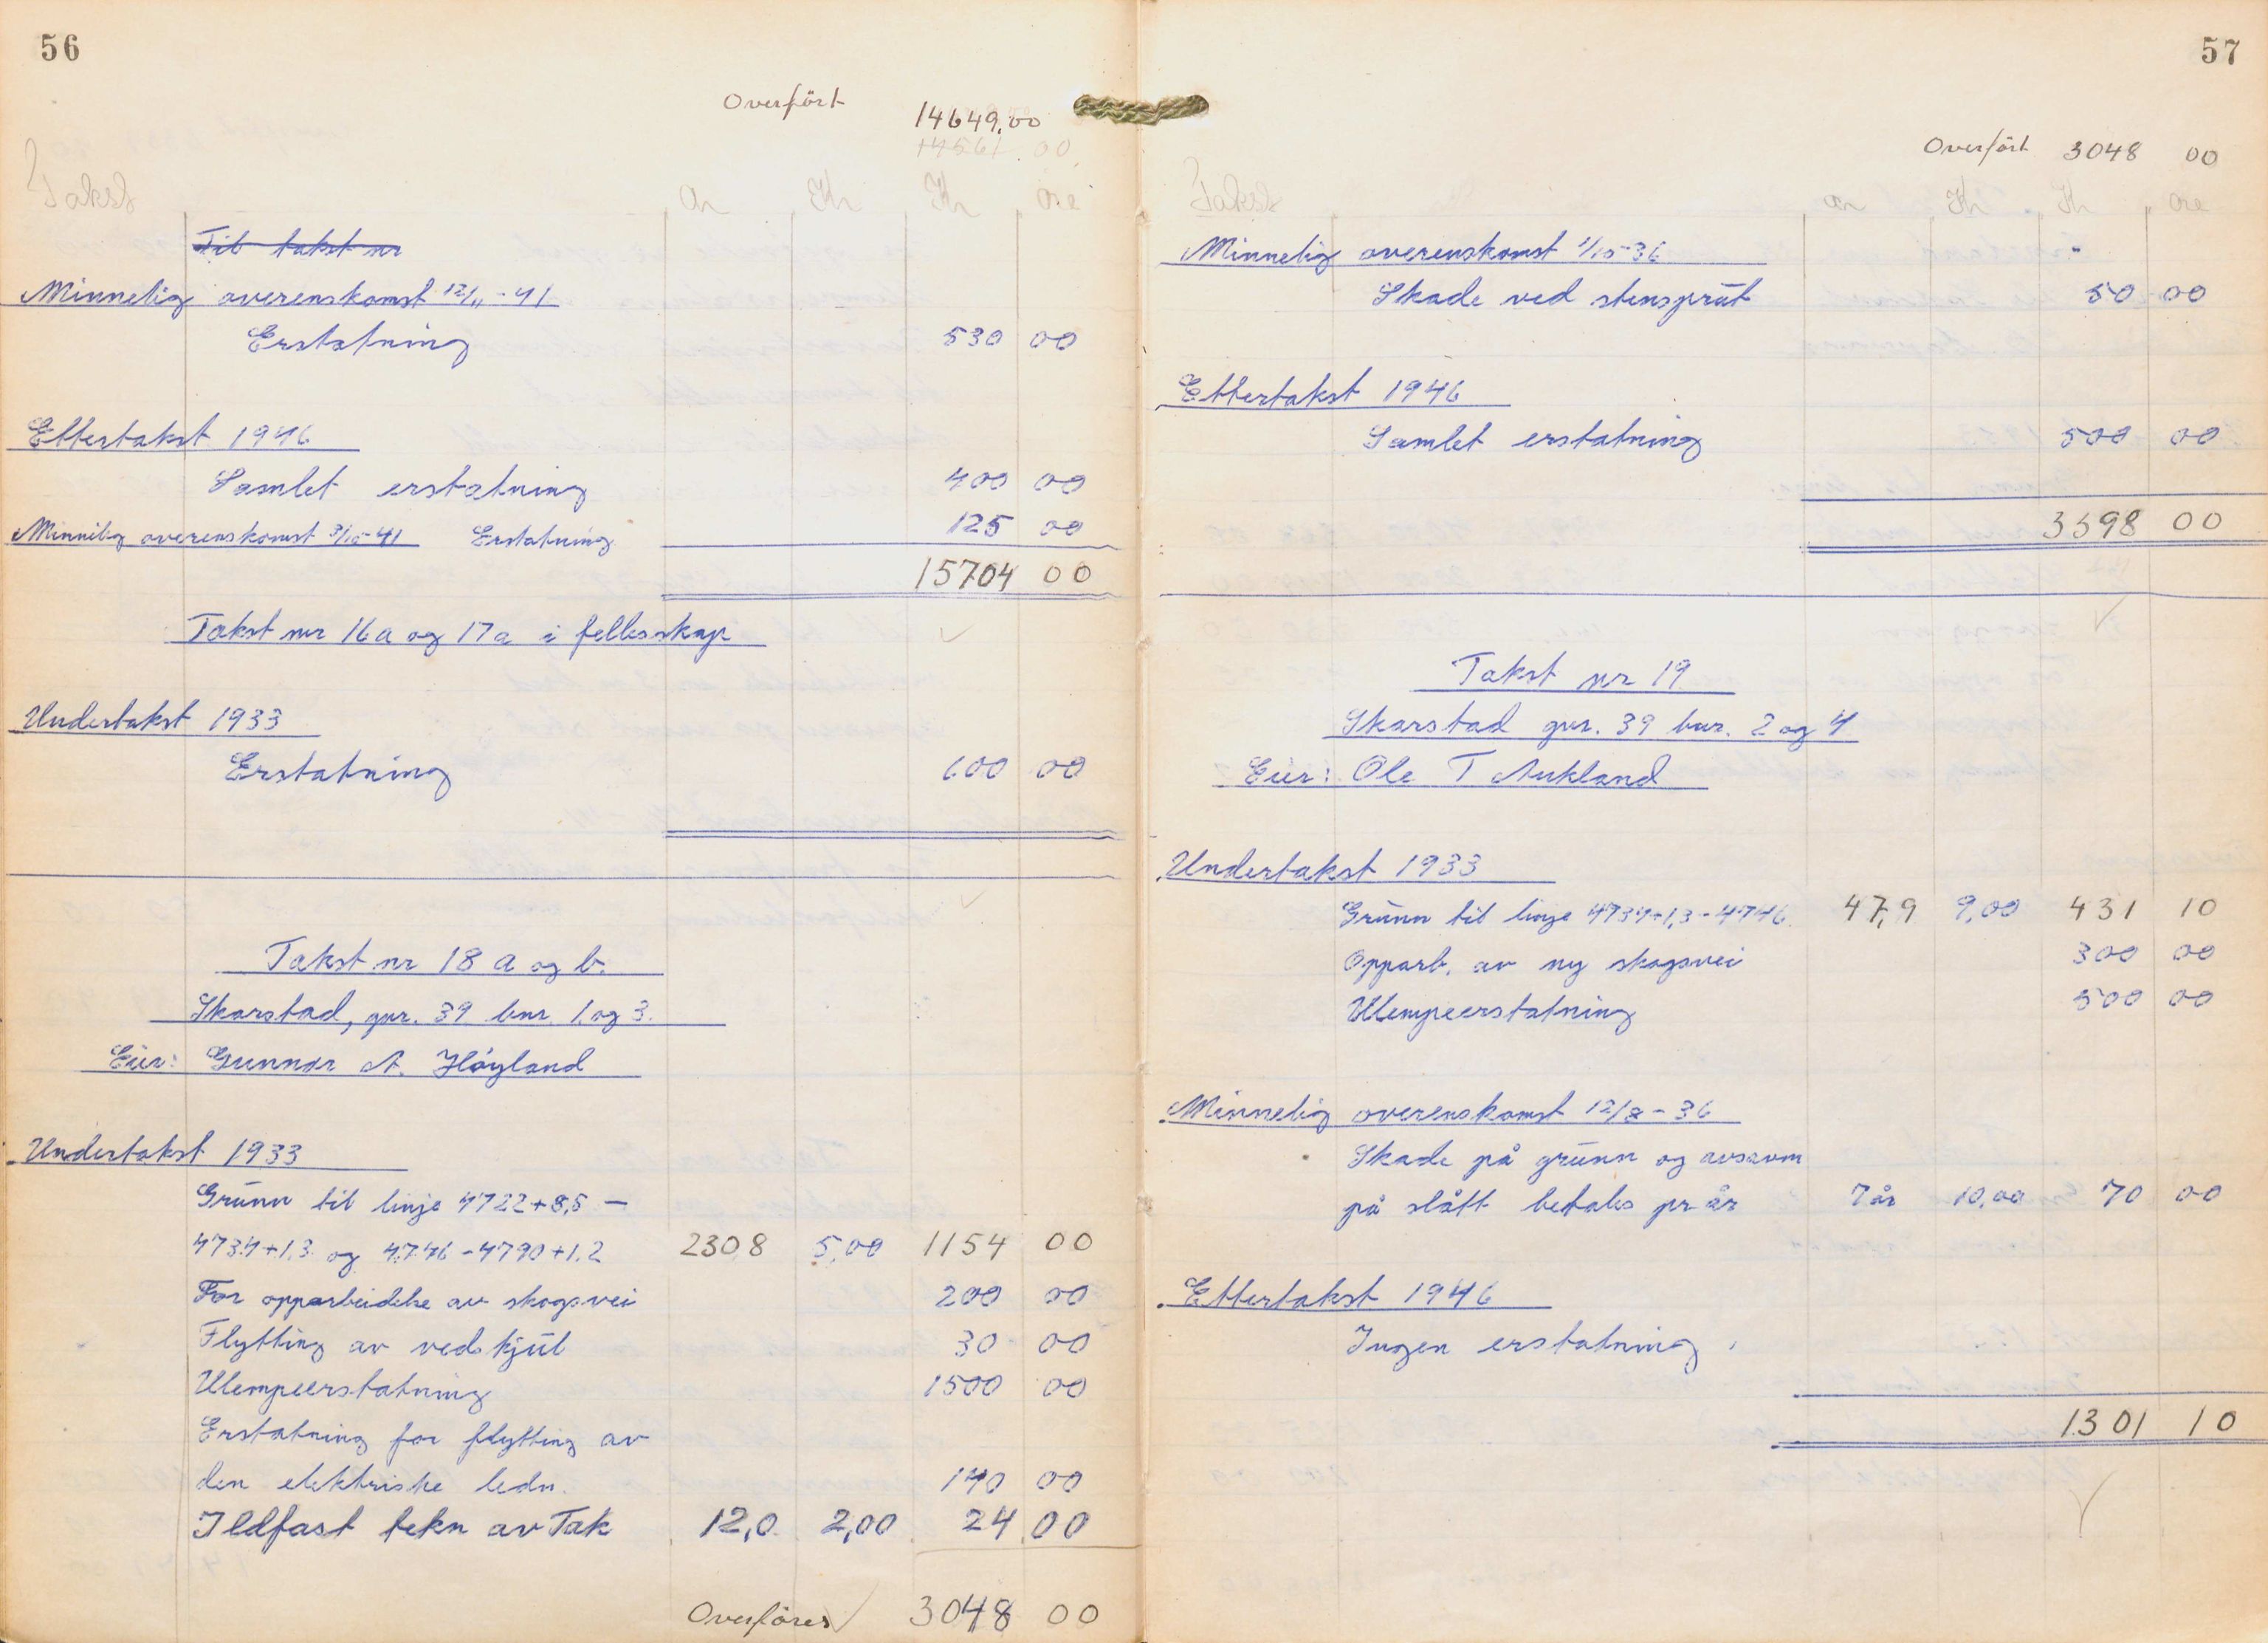 56
Overfört 14649.00
14561.00
Takst ar Kr Kr öre
Til takst nr
Minnelig overenskomst 12/11-41
Erstatning 530 00
Ettertakst 1946
Samlet erstatning 400 00
Minnelig overenskomst 3/10-41 Erstatning 125 00
15704 00
Takst nr 16a og 17a i fellesskap
Undertakst 1933
Erstatning 600 00
Takst nr 18 a og b.
Skarstad, gnr. 39 bnr 1. og 3.
Eier: Gunnar A. Höyland
Undertakst 1933
Grunn til linje 4722+8,5 –
4734+1,3 og 4746-4790+1.2 2308 5,00 1154 00
For opparbeidelse av skogsvei 200 00
Flytting av vedskjul 30 00
Ulempeerstatning 1500 00
Erstatning for flytting av
den elektriske ledn. 140 00
Ildfast tekn av Tak 12,0 2,00 24 00
Overföres 3048 00
57
Overfört 3048 00
Takst ar Kr Kr öre
Minnelig overenskomst 1/10-36
Skade ved stensprut 50 00
Ettertakst 1946
Samlet erstatning 500 00
3598 00
Takst nr 19
Skarstad gnr. 39 bnr. 2 og 4
Eier: Ole T Aukland
Undertakst 1933
Grunn til linje 4734+1,3-4746 47,9 9,00 431 10
Opparb. av ny skogsvei 300 00
Ulempeerstatning 500 00
Minnelig overenskomst 12/8-36
Skade på grunn og avsavn
på slått betales pr år 7 år 10,00 70 00
Ettertakst 1946
Ingen erstatning.
1301 10